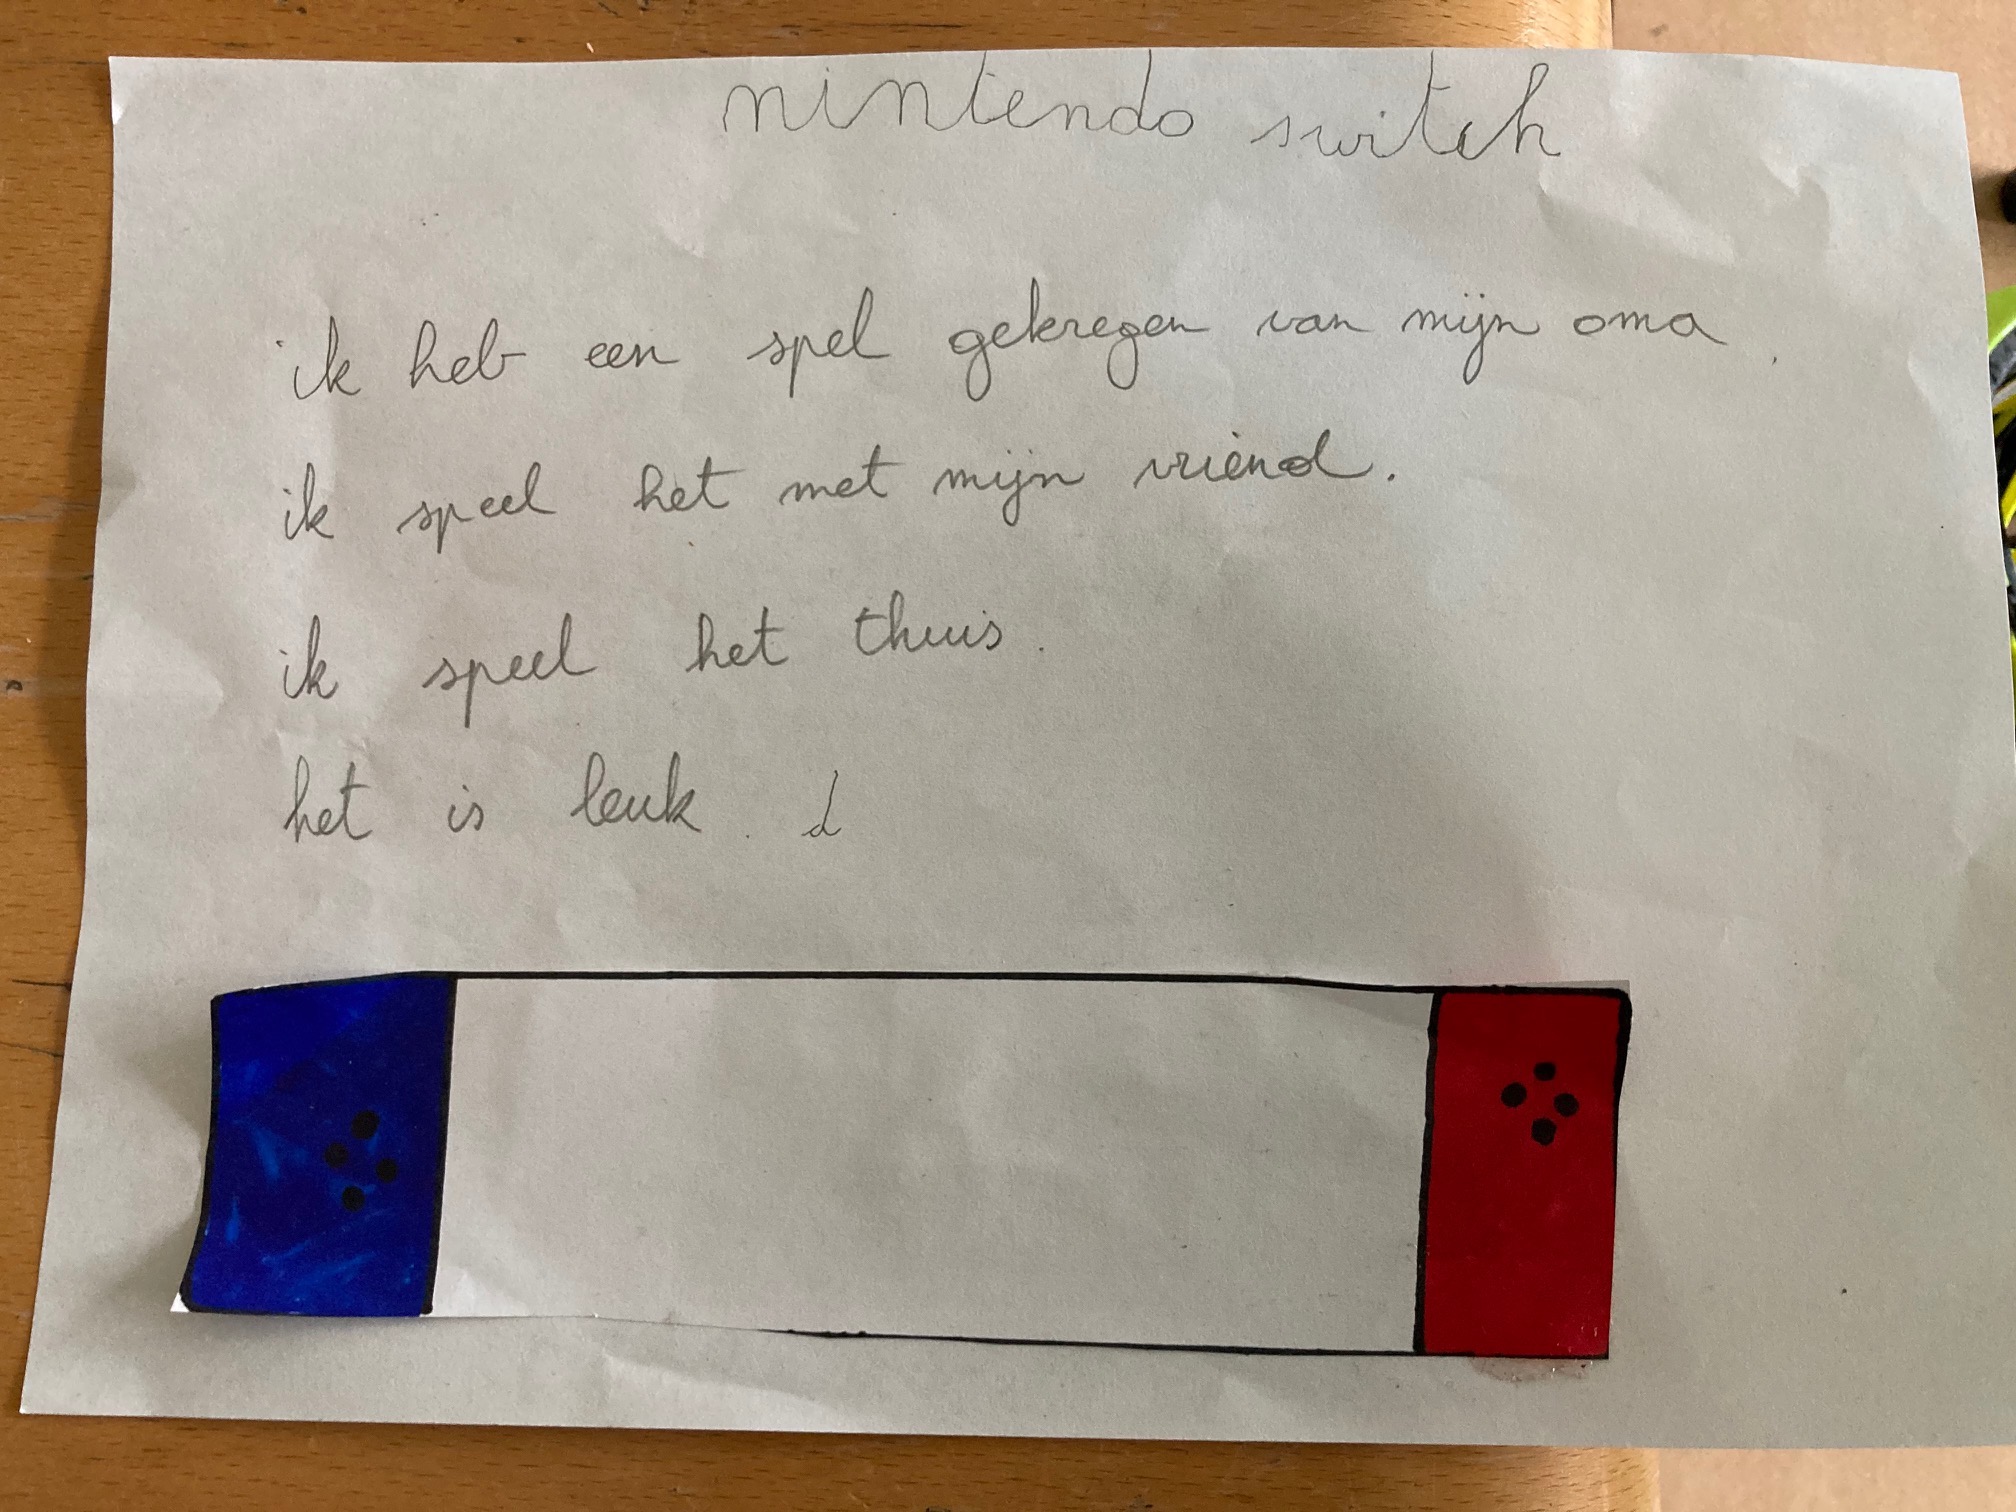 nintendo switch
ik heb een spel gekregen van mijn oma.
ik speel het met mijn vriend.
ik speel het thuis.
het is leuk. d